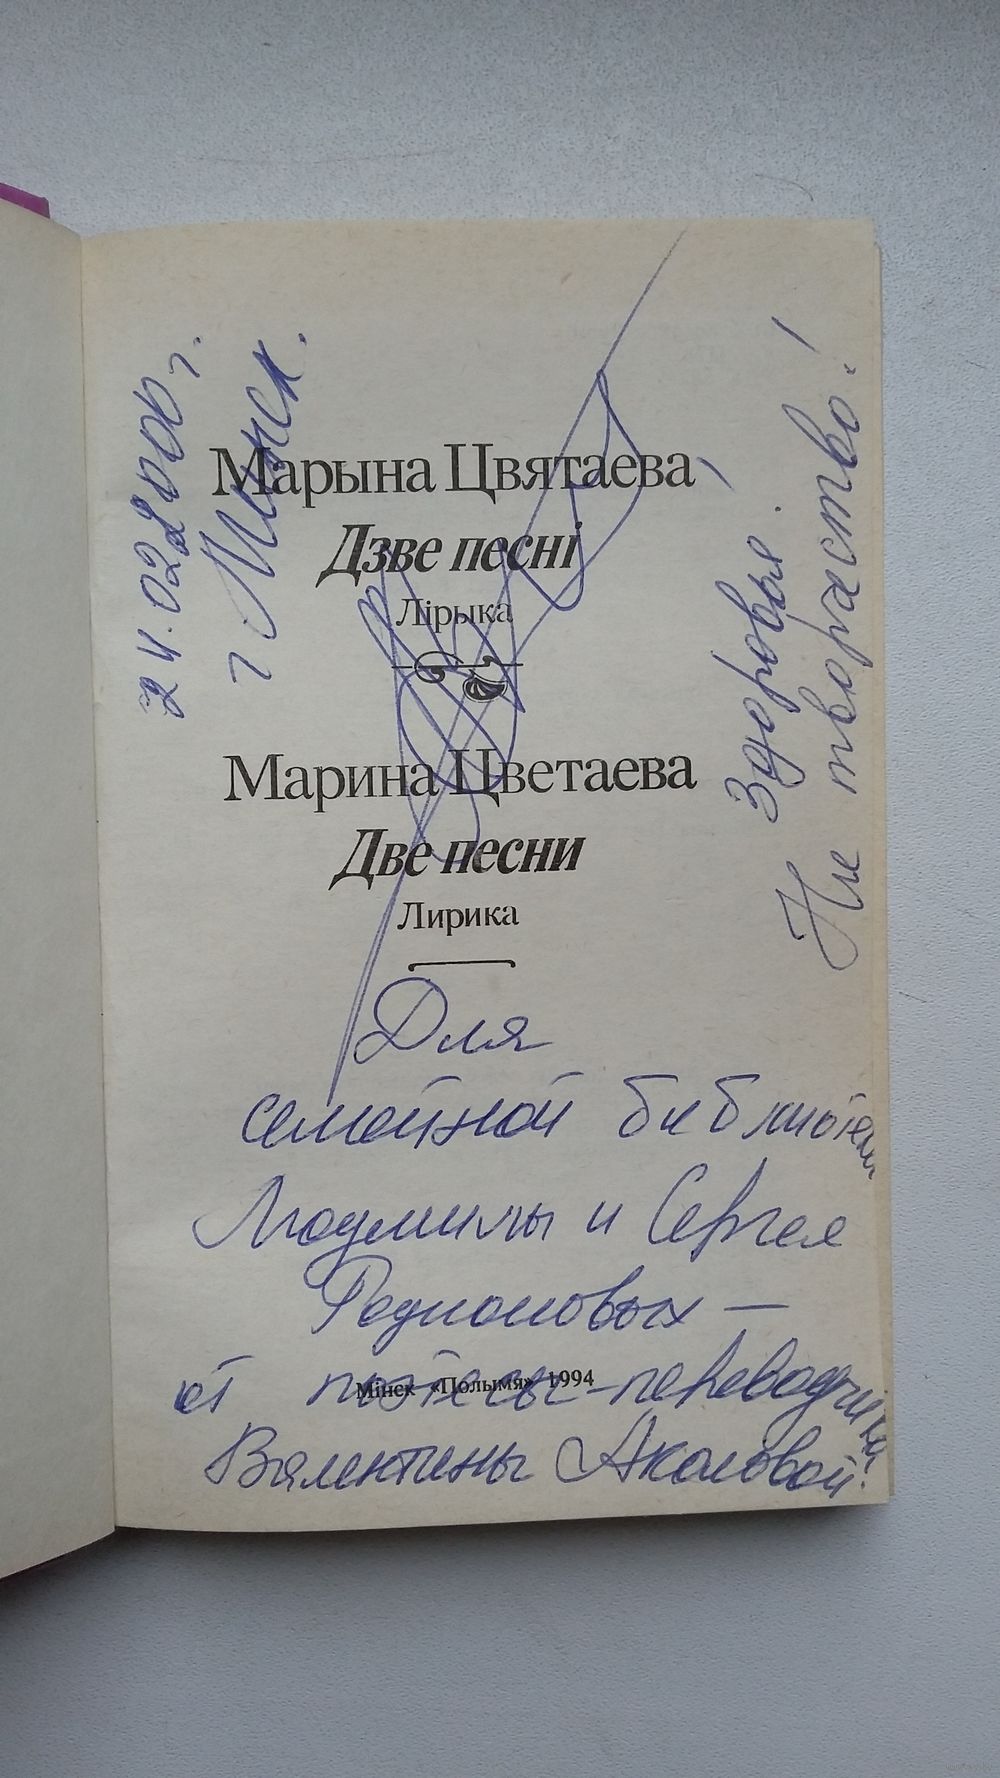 Марына Цвятаева
Дзве песні
Лірыка
Марина Цветаева
Две песни
Лирика
Для
семейной библиотеки
Людмилы и Сергея
Родионовых —
от поэтессы-переводчицы
Мінск «Полымя» 1994
Валентины Аколовой!
24.02.2000 г.
г Минск.
Здоровья!
На творчество!